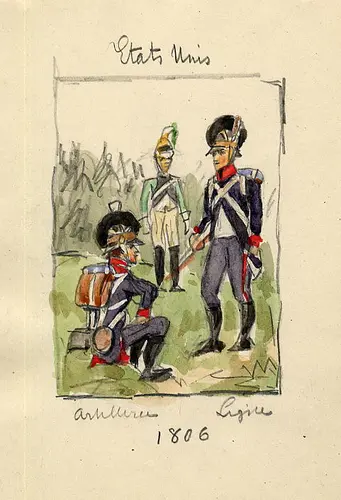 Etats Unis
Artillerie Ligne
1806